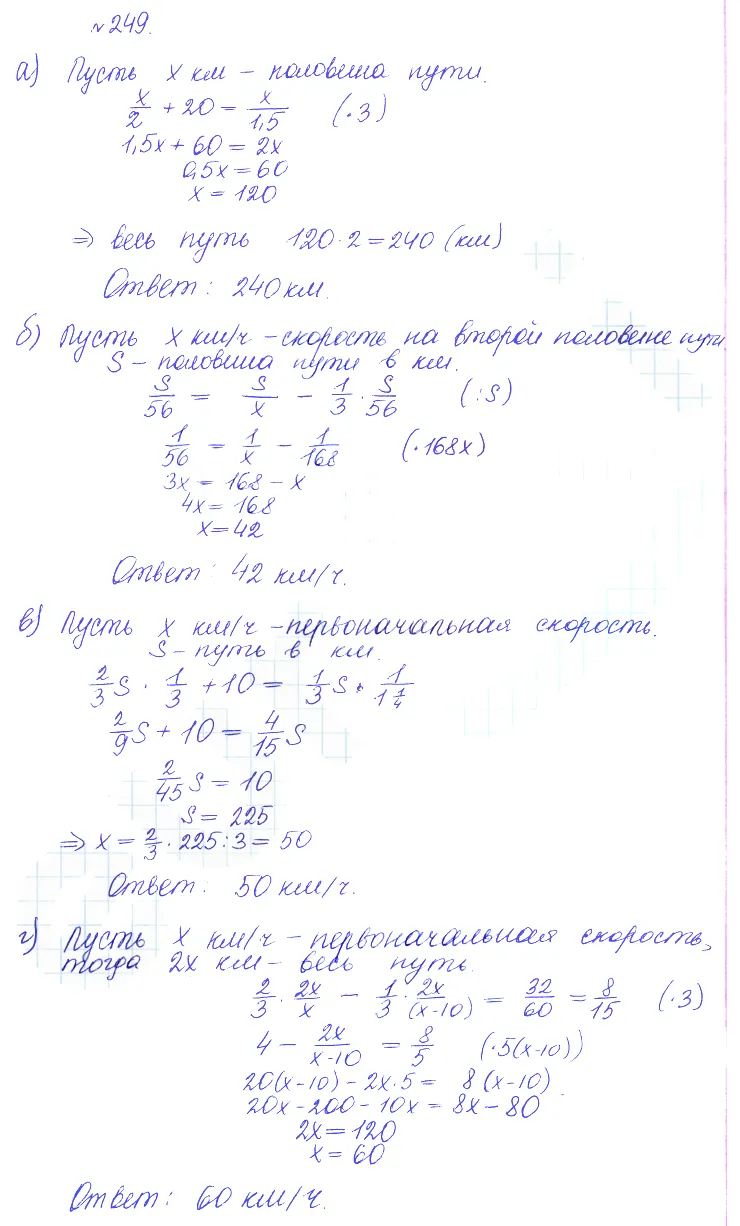 № 249.
а) Пусть x км – половина пути.
x/2 + 20 = x/1,5 (·3)
1,5x + 60 = 2x
0,5x = 60
x = 120
⇒ весь путь 120·2 = 240 (км)
Ответ: 240 км.
б) Пусть x км/ч – скорость на второй половине пути.
S – половина пути в км.
S/56 = S/x – 1/3 · S/56 (:S)
1/56 = 1/x – 1/168 (·168x)
3x = 168 – x
4x = 168
x = 42
Ответ: 42 км/ч.
в) Пусть x км/ч – первоначальная скорость.
S – путь в км.
2/3 S · 1/3 + 10 = 1/3 S · 1/1 1/4
2/9 S + 10 = 4/15 S
2/45 S = 10
S = 225
⇒ x = 2/3 · 225 : 3 = 50
Ответ: 50 км/ч.
г) Пусть x км/ч – первоначальная скорость,
тогда 2x км – весь путь.
2/3 · 2x/x – 1/3 · 2x/(x-10) = 32/60 = 8/15 (·3)
4 – 2x/x-10 = 8/5 (·5(x-10))
20(x-10) – 2x·5 = 8(x-10)
20x – 200 – 10x = 8x – 80
2x = 120
x = 60
Ответ: 60 км/ч.